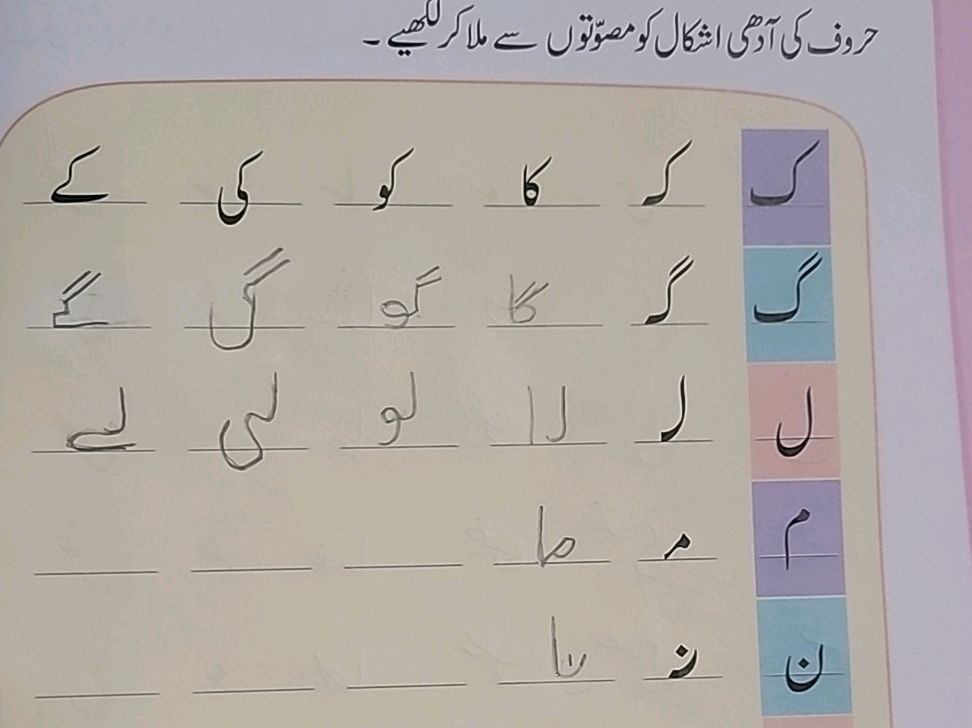 حروف کی آدھی اشکال کو مصوّتوں سے ملا کر لکھیے ۔
ک کـ کا کو کی کے
گ گـ گا گو گی گے
ل لـ لا لو لی لے
م مـ ما
ن نـ نا